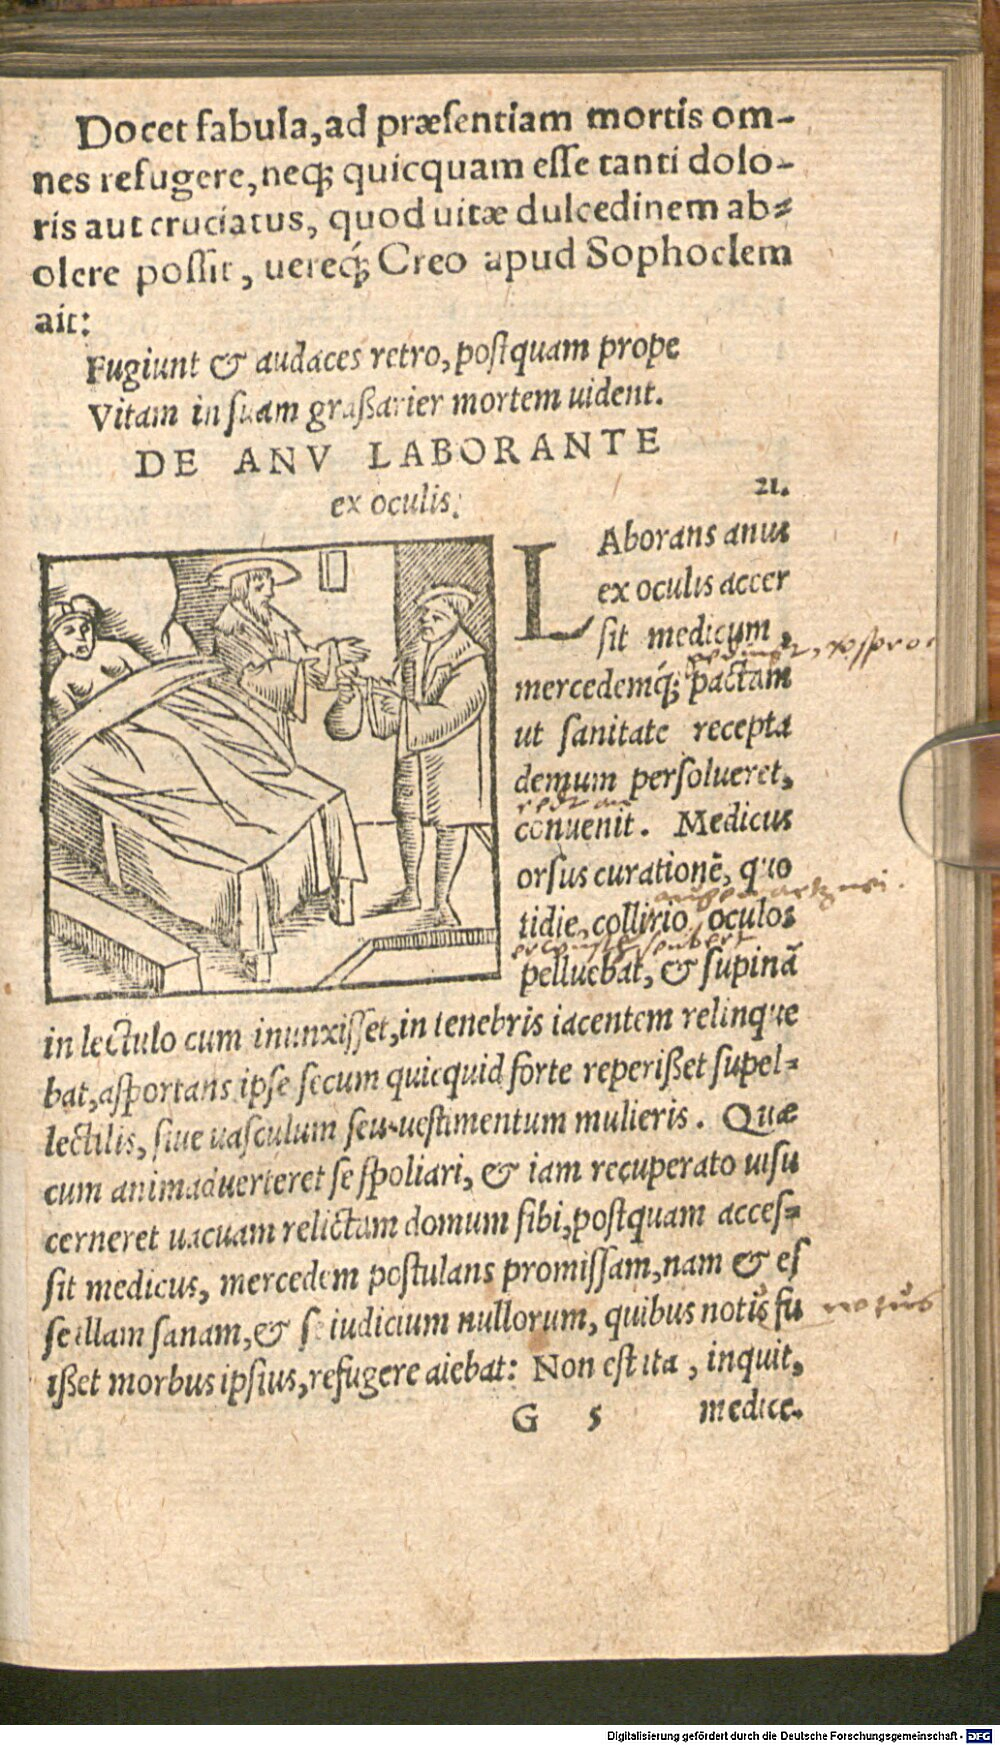 Docet fabula, ad præsentiam mortis om-
nes refugere, neq; quicquam esse tanti dolo-
ris aut cruciatus, quod uitæ dulcedinem ab-
olere possit, uereq́; Creo apud Sophoclem
ait:
Fugiunt & audaces retro, postquam prope
Vitam in suam graßarier mortem uident.
DE ANV LABORANTE
ex oculis.
21.
LAborans anus
ex oculis accer
sit medicum,
mercedemq́; pactam
ut sanitate recepta
demum persolueret,
conuenit. Medicus
orsus curationẽ, quo
tidie collirio oculos
pelluebat, & supinã
in lectulo cum inunxisset, in tenebris iacentem relinque
bat, asportans ipse secum quicquid forte reperißet supel-
lectilis, siue uasculum seu uestimentum mulieris. Quæ
cum animaduerteret se spoliari, & iam recuperato uisu
cerneret uacuam relictam domum sibi, postquam acces-
sit medicus, mercedem postulans promissam, nam & es
se illam sanam, & se iudicium nullorum, quibus notus fu
ißet morbus ipsius, refugere aiebat: Non est ita, inquit,
notus
G 5 medice.
Digitalisierung gefördert durch die Deutsche Forschungsgemeinschaft - DFG